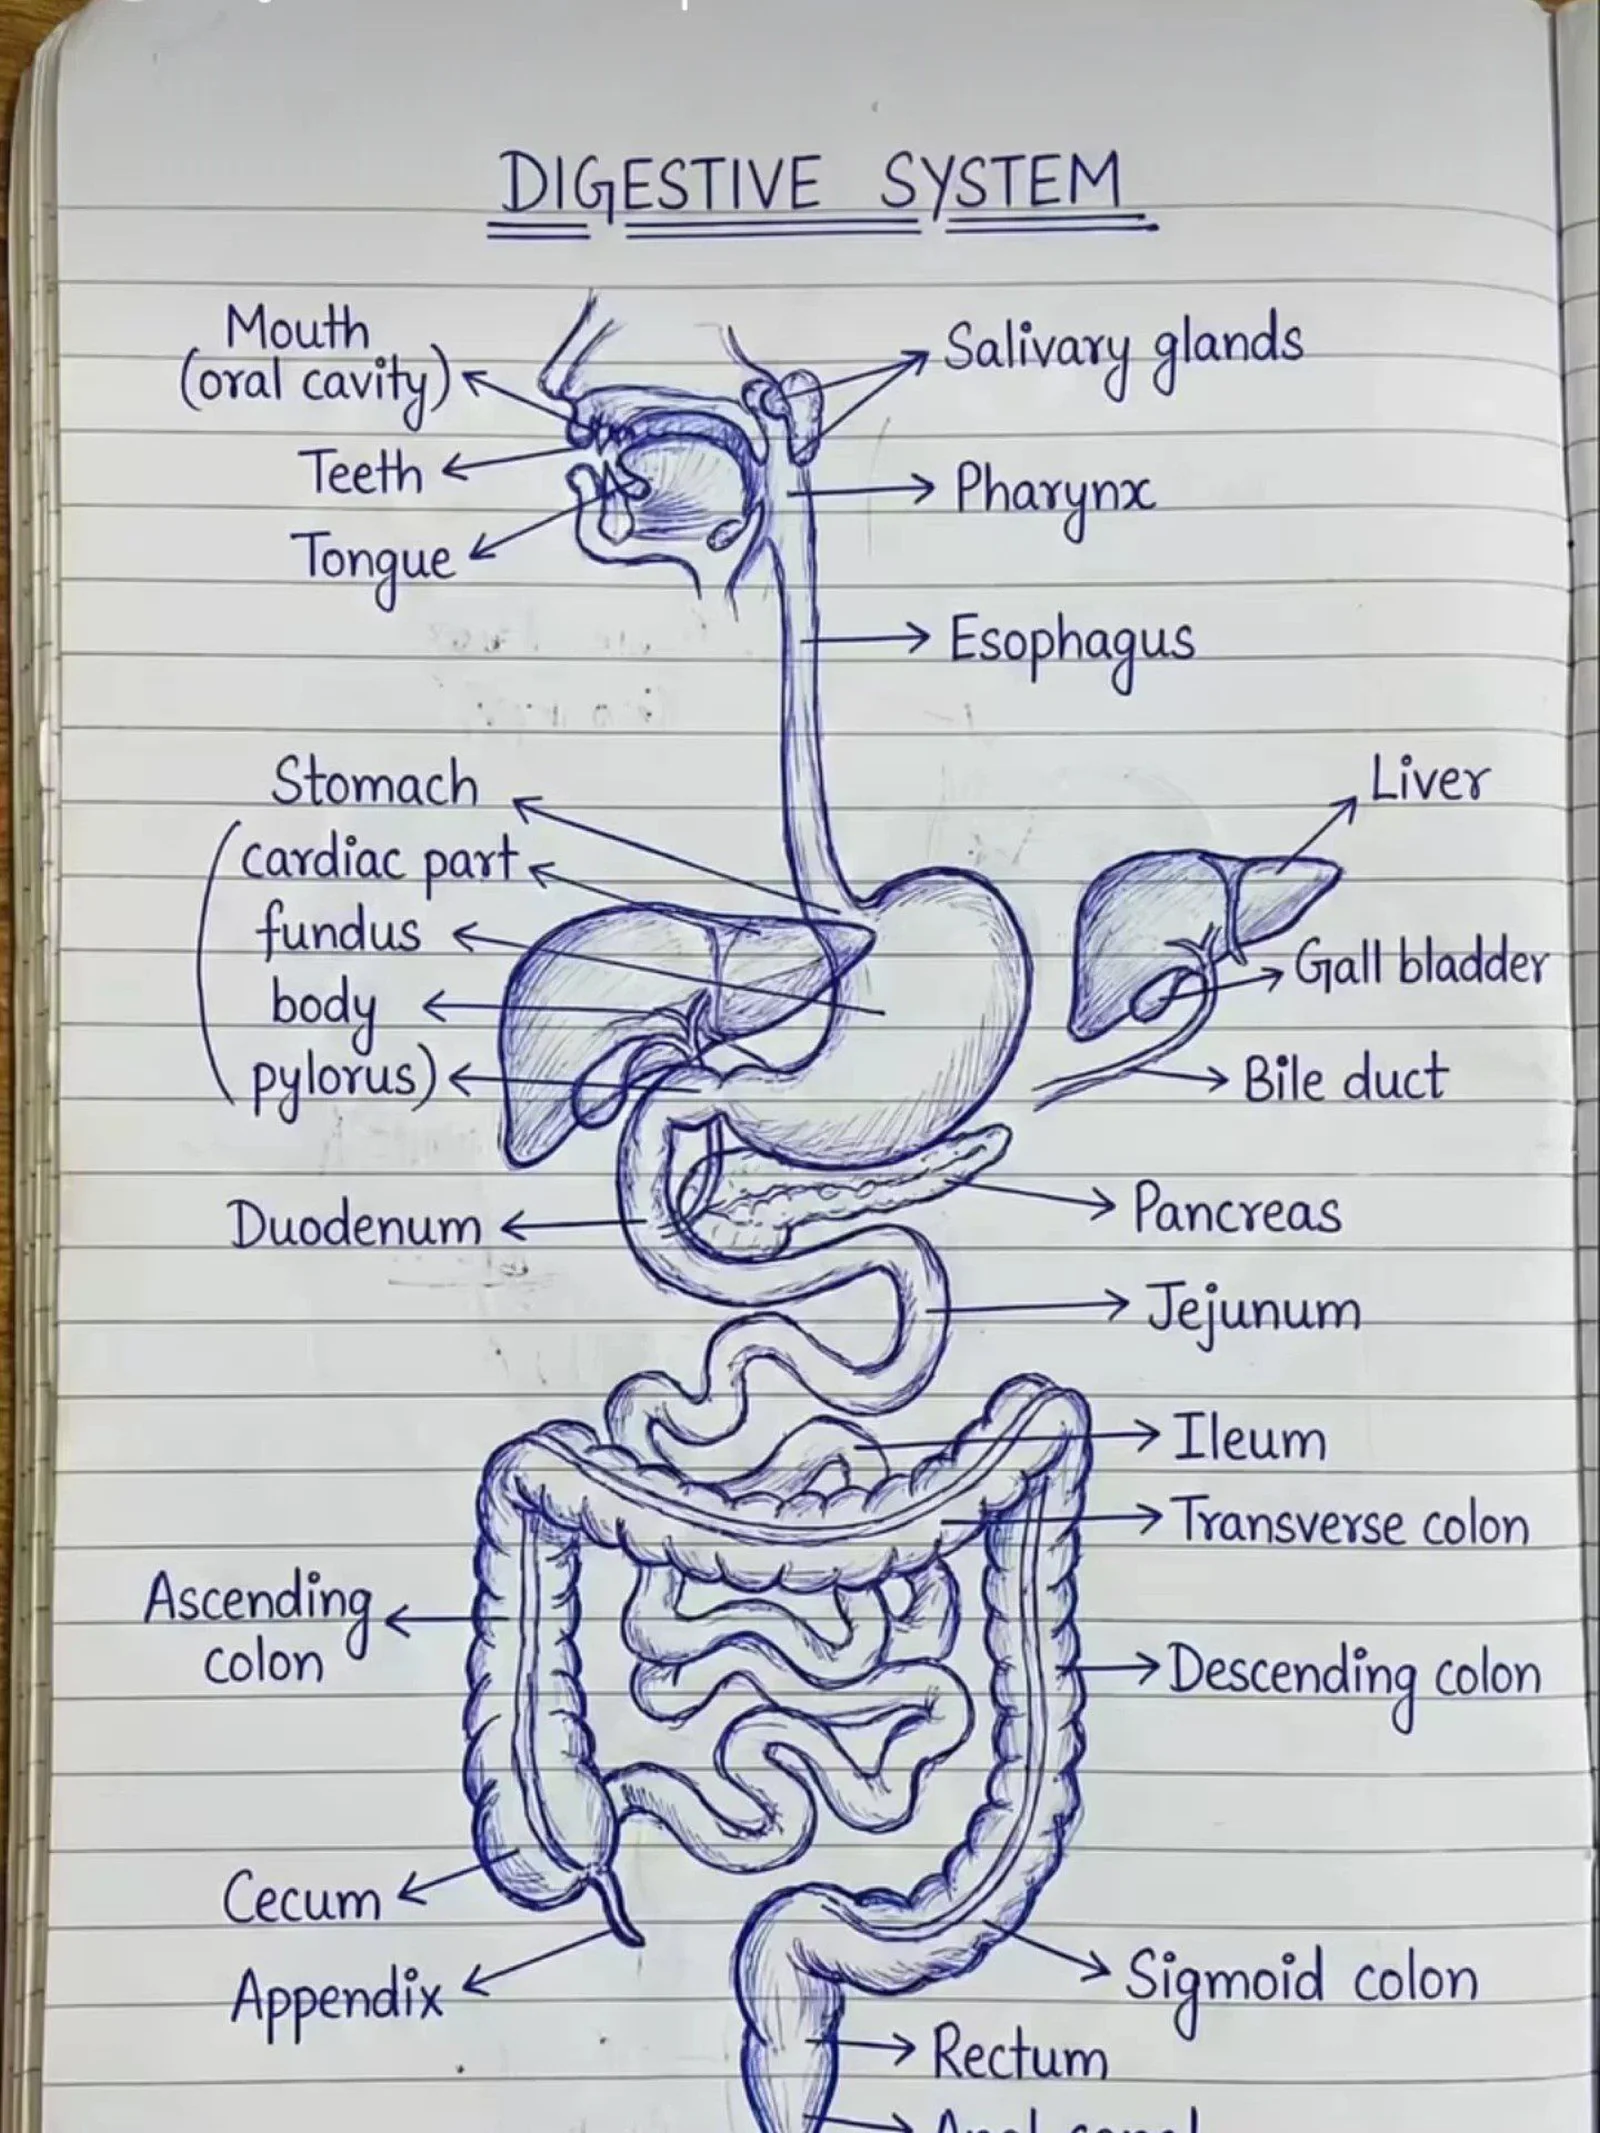 DIGESTIVE SYSTEM
Mouth
(oral cavity)
Salivary glands
Teeth
Pharynx
Tongue
Esophagus
Stomach
Liver
(cardiac part
fundus
Gall bladder
body
pylorus)
Bile duct
Duodenum
Pancreas
Jejunum
Ileum
Transverse colon
Ascending
colon
Descending colon
Cecum
Appendix
Sigmoid colon
Rectum
Anal canal